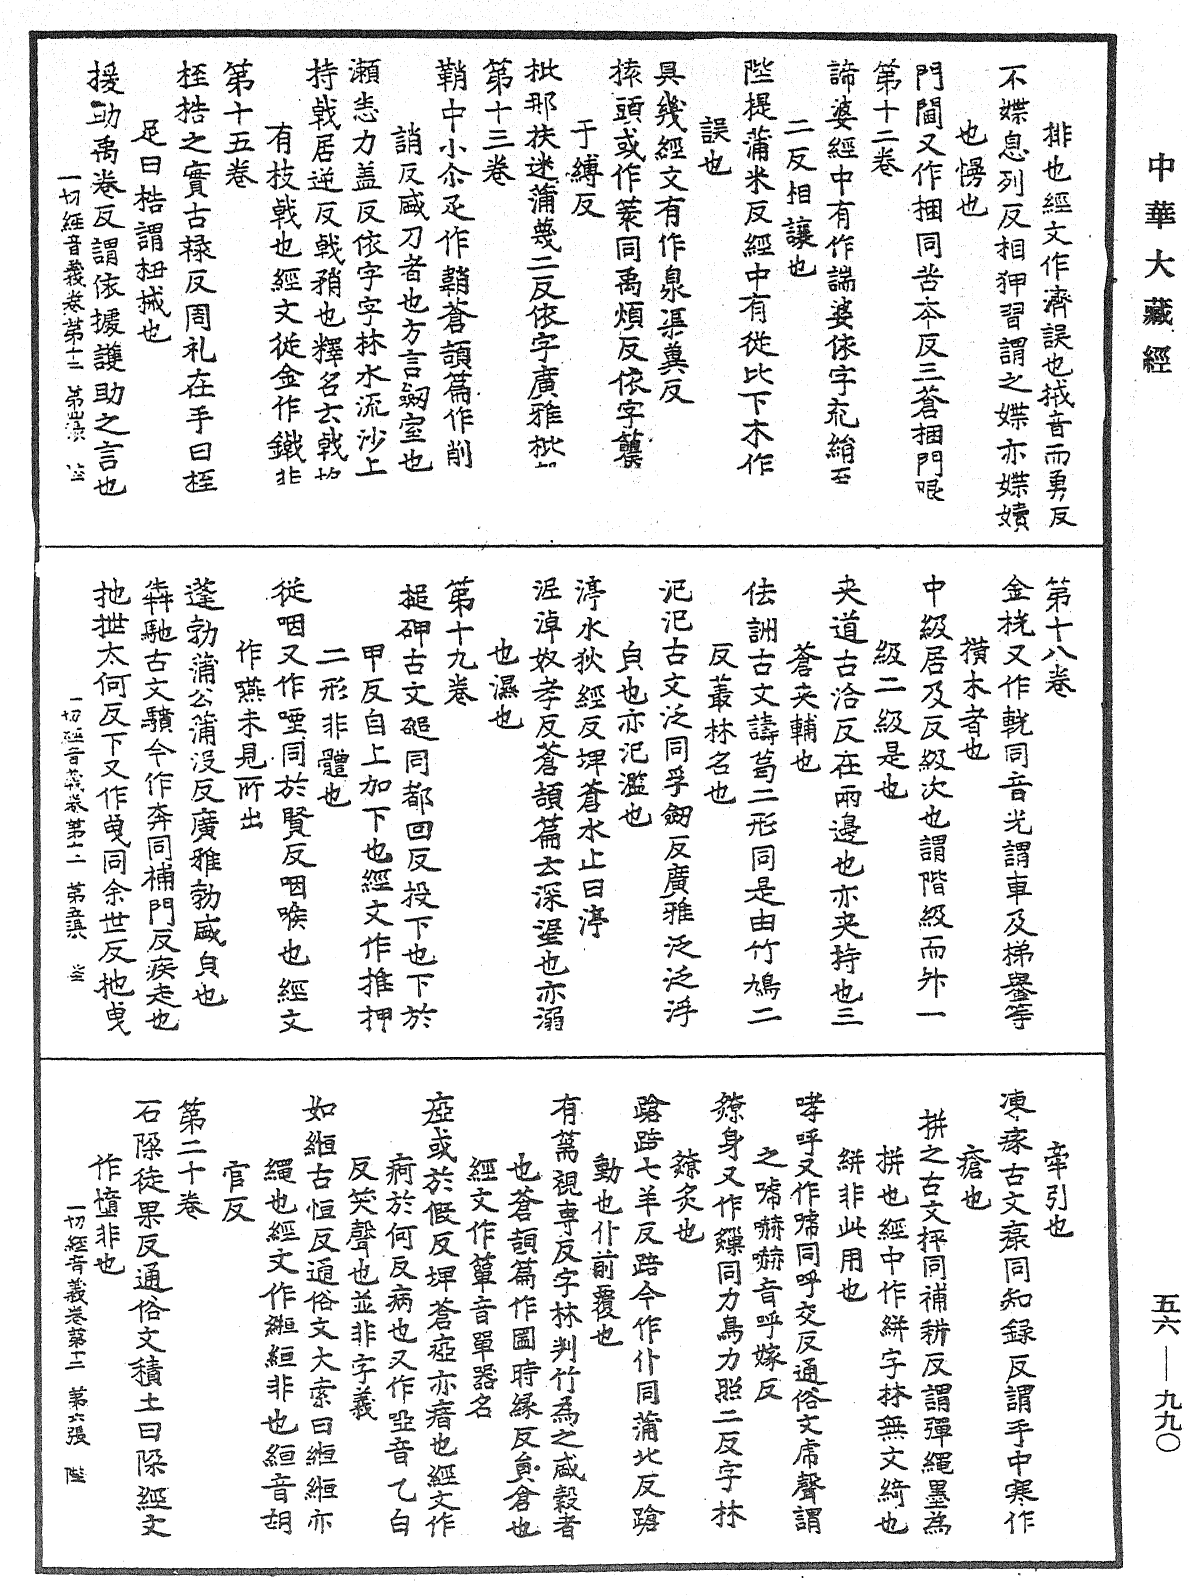 中華大藏經
排也經文作濟誤也搣音而勇反
不媟息列反相狎習謂之媟亦媟嬻
也慢也
門閫又作梱同苦本反三蒼梱門限
第十二卷
諦婆經中有作諯婆依字充絹至
二反相讓也
陛提蒲米反經中有從比下木作
誤也
具幾經文有作臮渠冀反
㨿頭或作䉵同禹煩反依字籰
于縛反
枇那扶迷蒲蔑二反依字廣雅枇
第十三卷
鞘中小尒疋作韒蒼頡篇作削
誚反盛刀者也方言劒室也
瀨恚力盖反依字字林水流沙上
持戟居逆反戟矟也釋名云戟
有枝戟也經文從金作鐵非
第十五卷
桎梏之實古禄反周礼在手曰桎
足曰梏謂杻械也
援助禹卷反謂依據護助之言也
一切經音義卷第十二
第十八卷
金桄又作軦同音光謂車及梯轝等
撗木者也
中級居及反級次也謂階級而外一
級二級是也
夾道古洽反在兩邊也亦夾持也三
蒼夾輔也
佉詶古文譸䓟二形同是由竹鳩二
反叢林名也
氾氾古文泛同孚劒反廣雅泛泛浮
皃也亦氾濫也
渟水狄經反埤蒼水止曰渟
淫淖奴孝反蒼頡篇云深埿也亦溺
也濕也
第十九卷
搥砷古文磓同都回反投下也下於
甲反自上加下也經文作推押
二形非體也
從咽又作㖶同於賢反咽喉也經文
作嚥未見所出
蓬勃蒲公蒲没反廣雅勃盛皃也
犇馳古文驞今作奔同補門反疾走也
扡抴太何反下又作曳同余世反扡曳
一切經音義卷第十二
牽引也
凍瘃古文㿇同知録反謂手中寒作
瘡也
拼之古文抨同補耕反謂彈繩墨為
拼也經中作絣字林無文綺也
絣非此用也
哮呼又作唬同呼交反通俗文虎聲謂
之唬嚇嚇音呼嫁反
鐐身又作䥥同力鳥力照二反字林
鐐炙也
蹌踣七羊反踣今作仆同蒲北反蹌
動也仆前覆也
有篅視專反字林判竹為之盛穀者
也蒼頡篇作圌時緣反貟倉也
經文作簞音單器名
瘂或於假反埤蒼瘂亦瘖也經文作
痾於何反病也又作啞音乙白
反笑聲也並非字義
如縆古恒反通俗文大索曰縆縆亦
繩也經文作縆絙非也絙音胡
官反
第二十卷
石䧋徒果反通俗文積土曰䧋經文
作墥非也
一切經音義卷第十二 第六張 陛
五六—九九〇